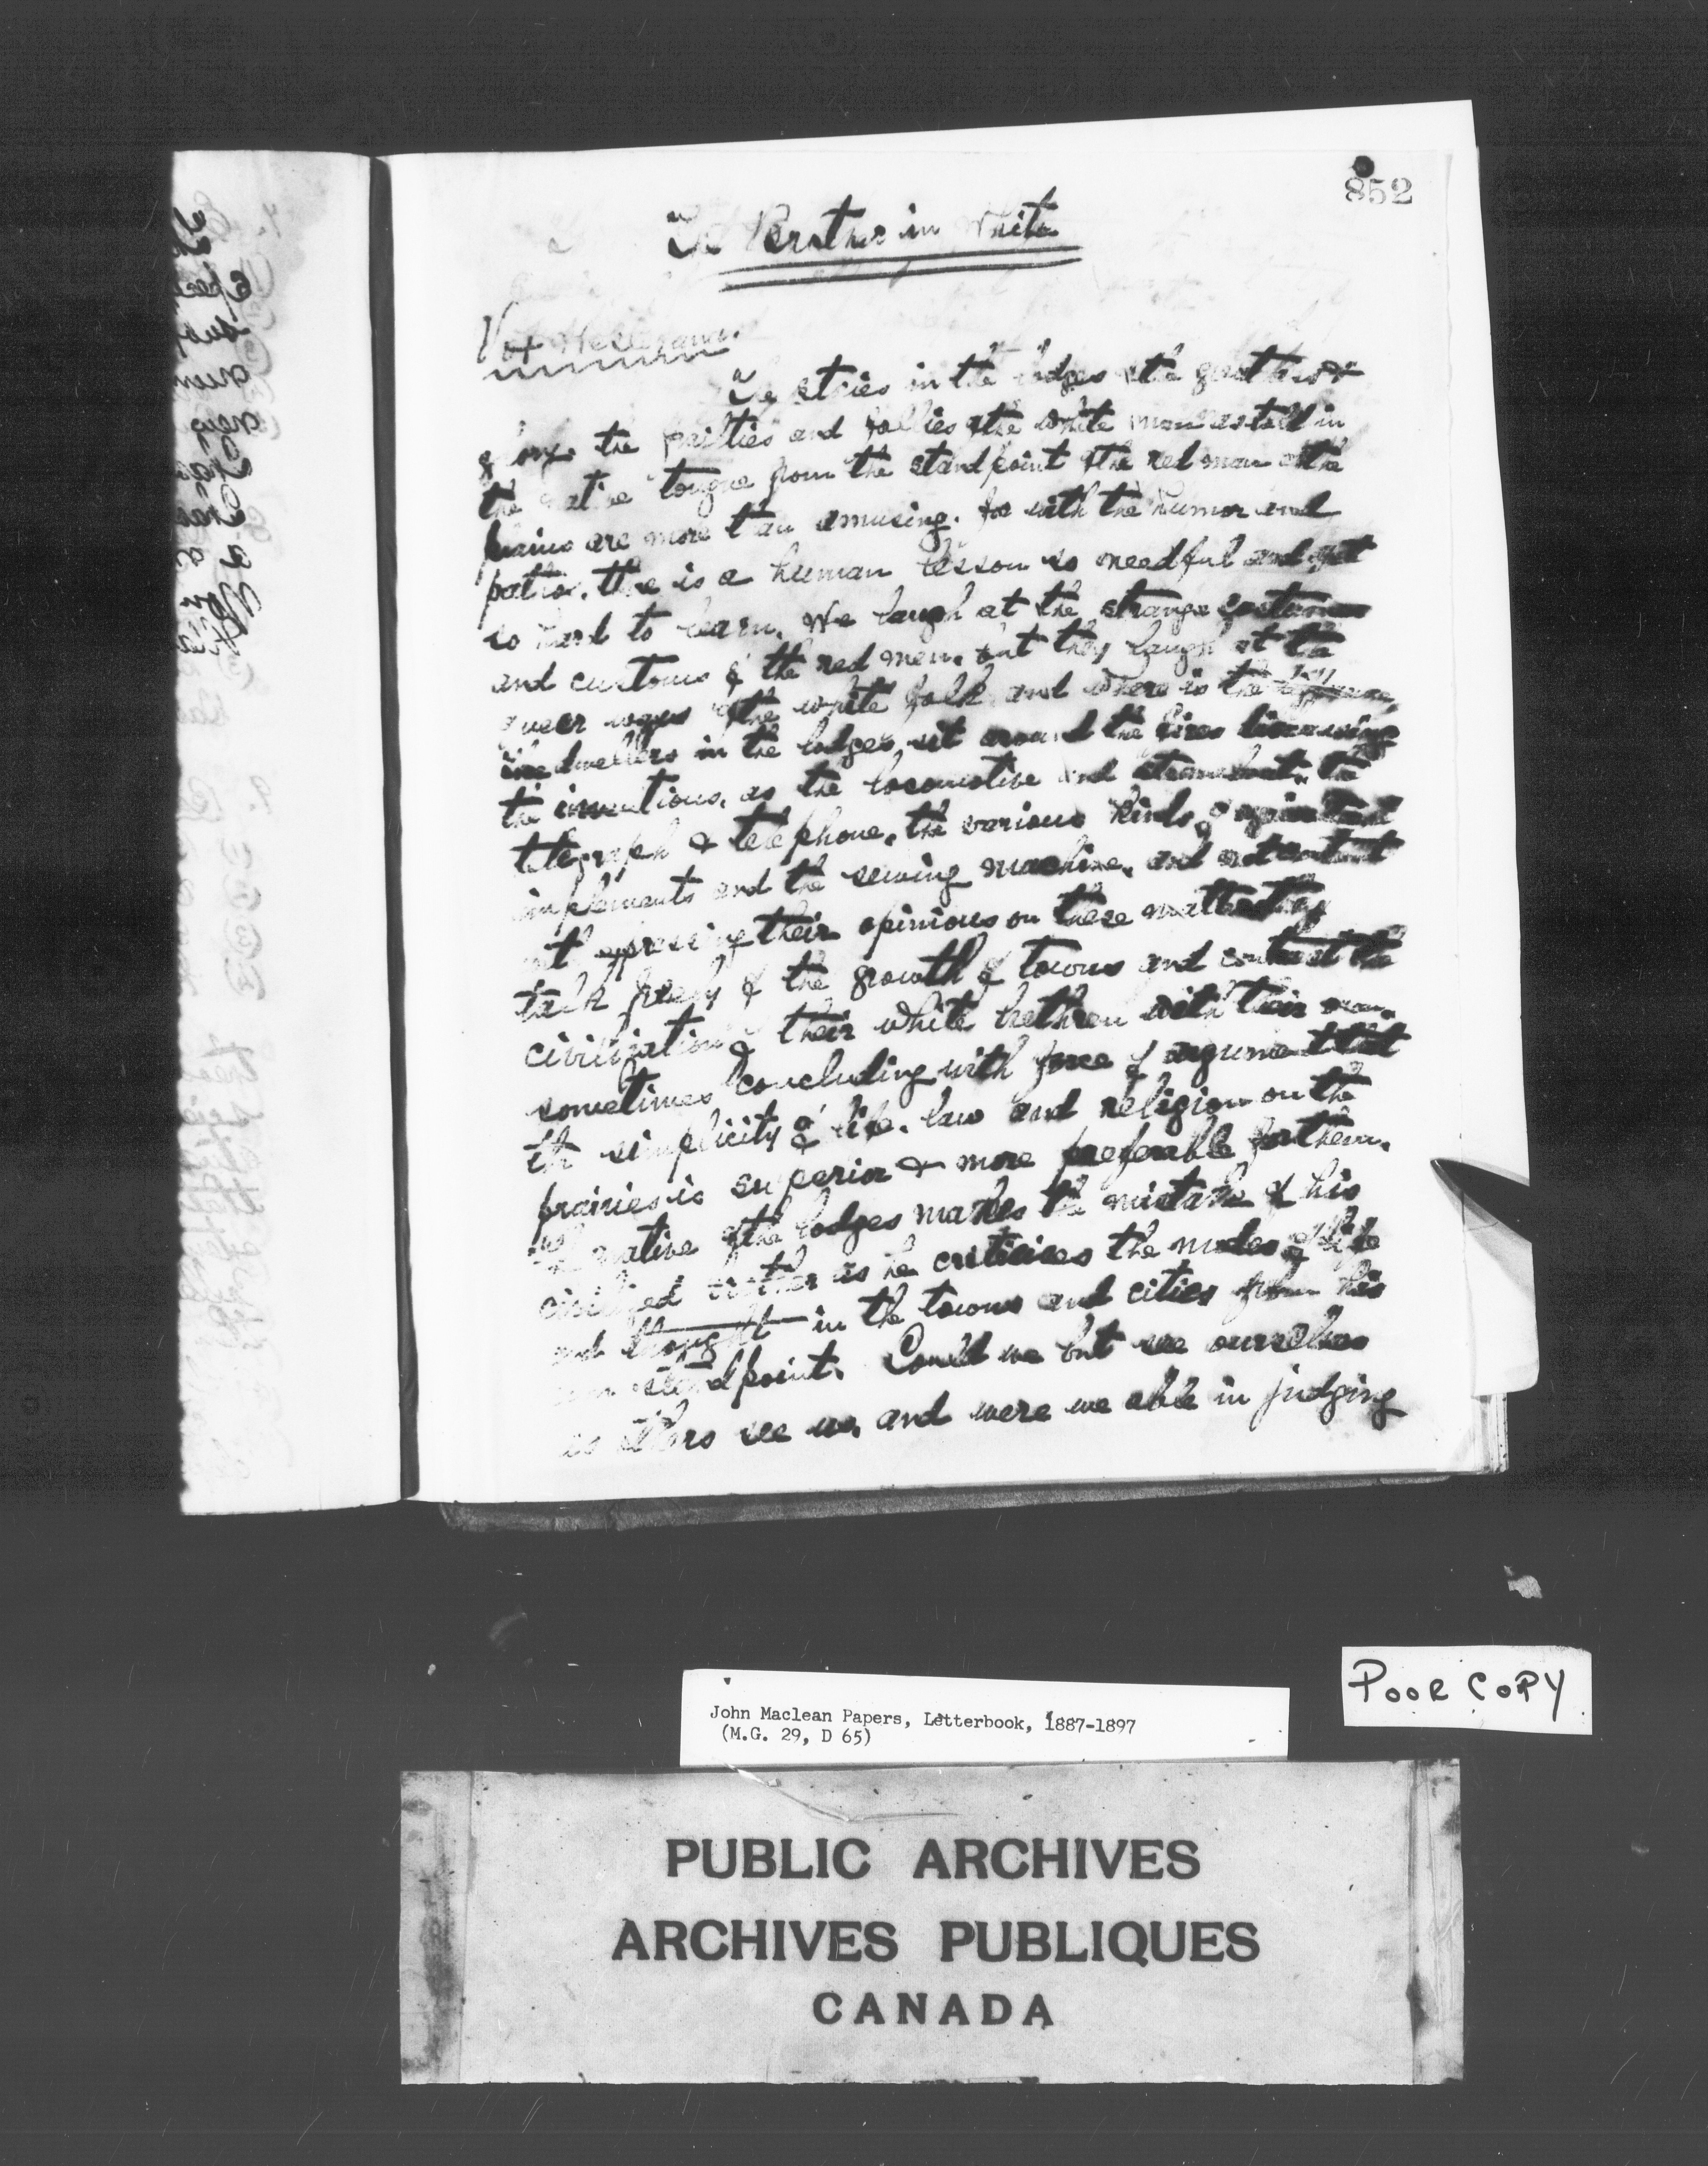 852
The Brother in White
Vox
The stories in the lodges of the greatness &
glory, the frailties and follies of the white man as told in
the native tongue from the standpoint of the red man of the
plains are more than amusing, for with the humor and
pathos, there is a human lesson so needful and yet
so hard to learn. We laugh at the strange
and customs of the red men, but they laugh at the
queer ways of the white folk, and where is the
dwellers in the lodges sit around the fires discussing
the inventions, as the locomotive and steamboat, the
telegraph & telephone, the various kinds of
implements and the sewing machine, and not content
with expressing their opinions on these matters they
talk freely of the growth of towns and contrast the
civilization of their white brethren with their own,
sometimes concluding with force of argument that
the simplicity of life, law and religion on the
prairies is superior & more preferable for them.
The native of the lodges makes the mistake of his
civilized brother as he criticises the modes of life
and thought in the towns and cities from his
own standpoint. Could we but see ourselves
as others see us, and were we able in judging
POOR COPY
John Maclean Papers, Letterbook, 1887-1897
(M.G. 29, D 65)
PUBLIC ARCHIVES
ARCHIVES PUBLIQUES
CANADA